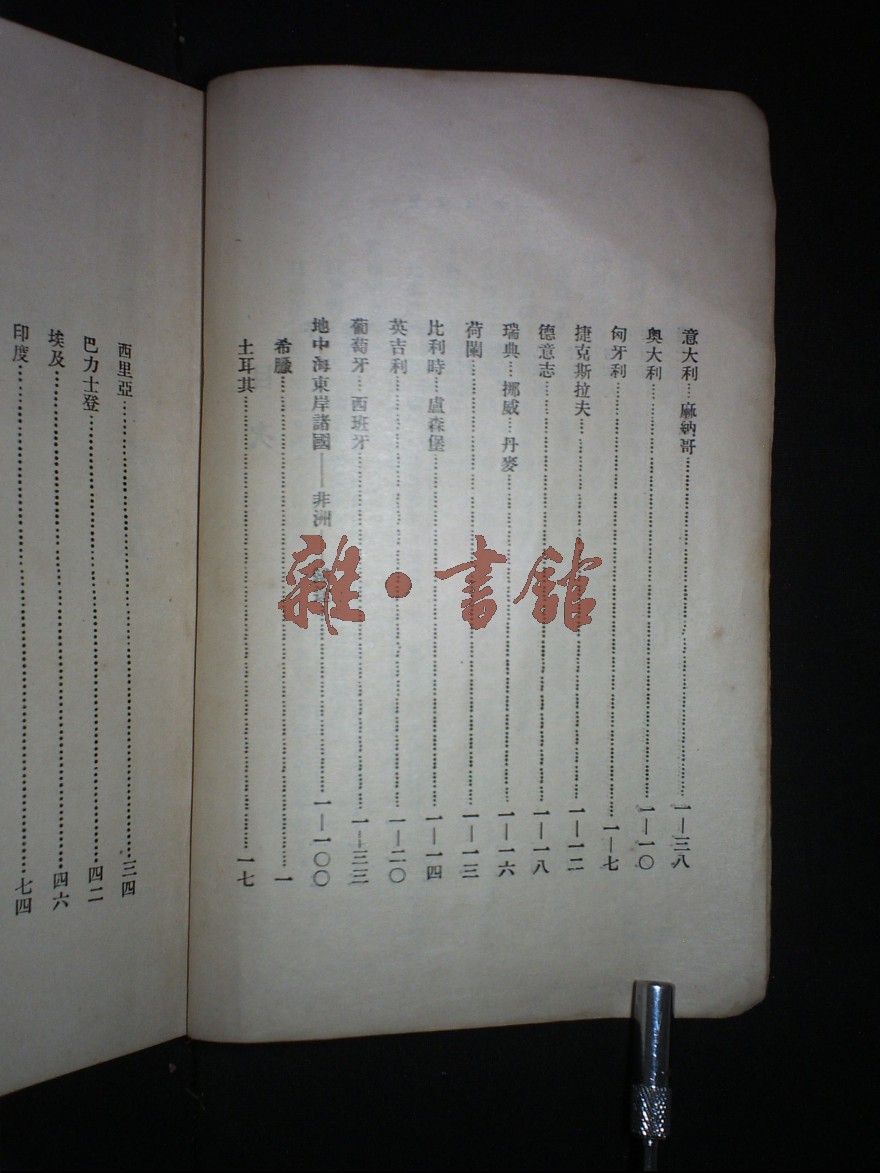 意大利…麻納哥……一—三八
奥大利……一—一〇
匈牙利……一—七
捷克斯拉夫……一—一二
德意志……一—一八
瑞典…挪威…丹麥……一—一六
荷蘭……一—一三
比利時…盧森堡……一—一四
英吉利……一—二〇
葡萄牙…西班牙……一—三三
地中海東岸諸國——非洲……一—一〇〇
希臘……一
土耳其……一七
西里亞……三四
巴力士登……四二
埃及……四六
印度……七四
雜·書館